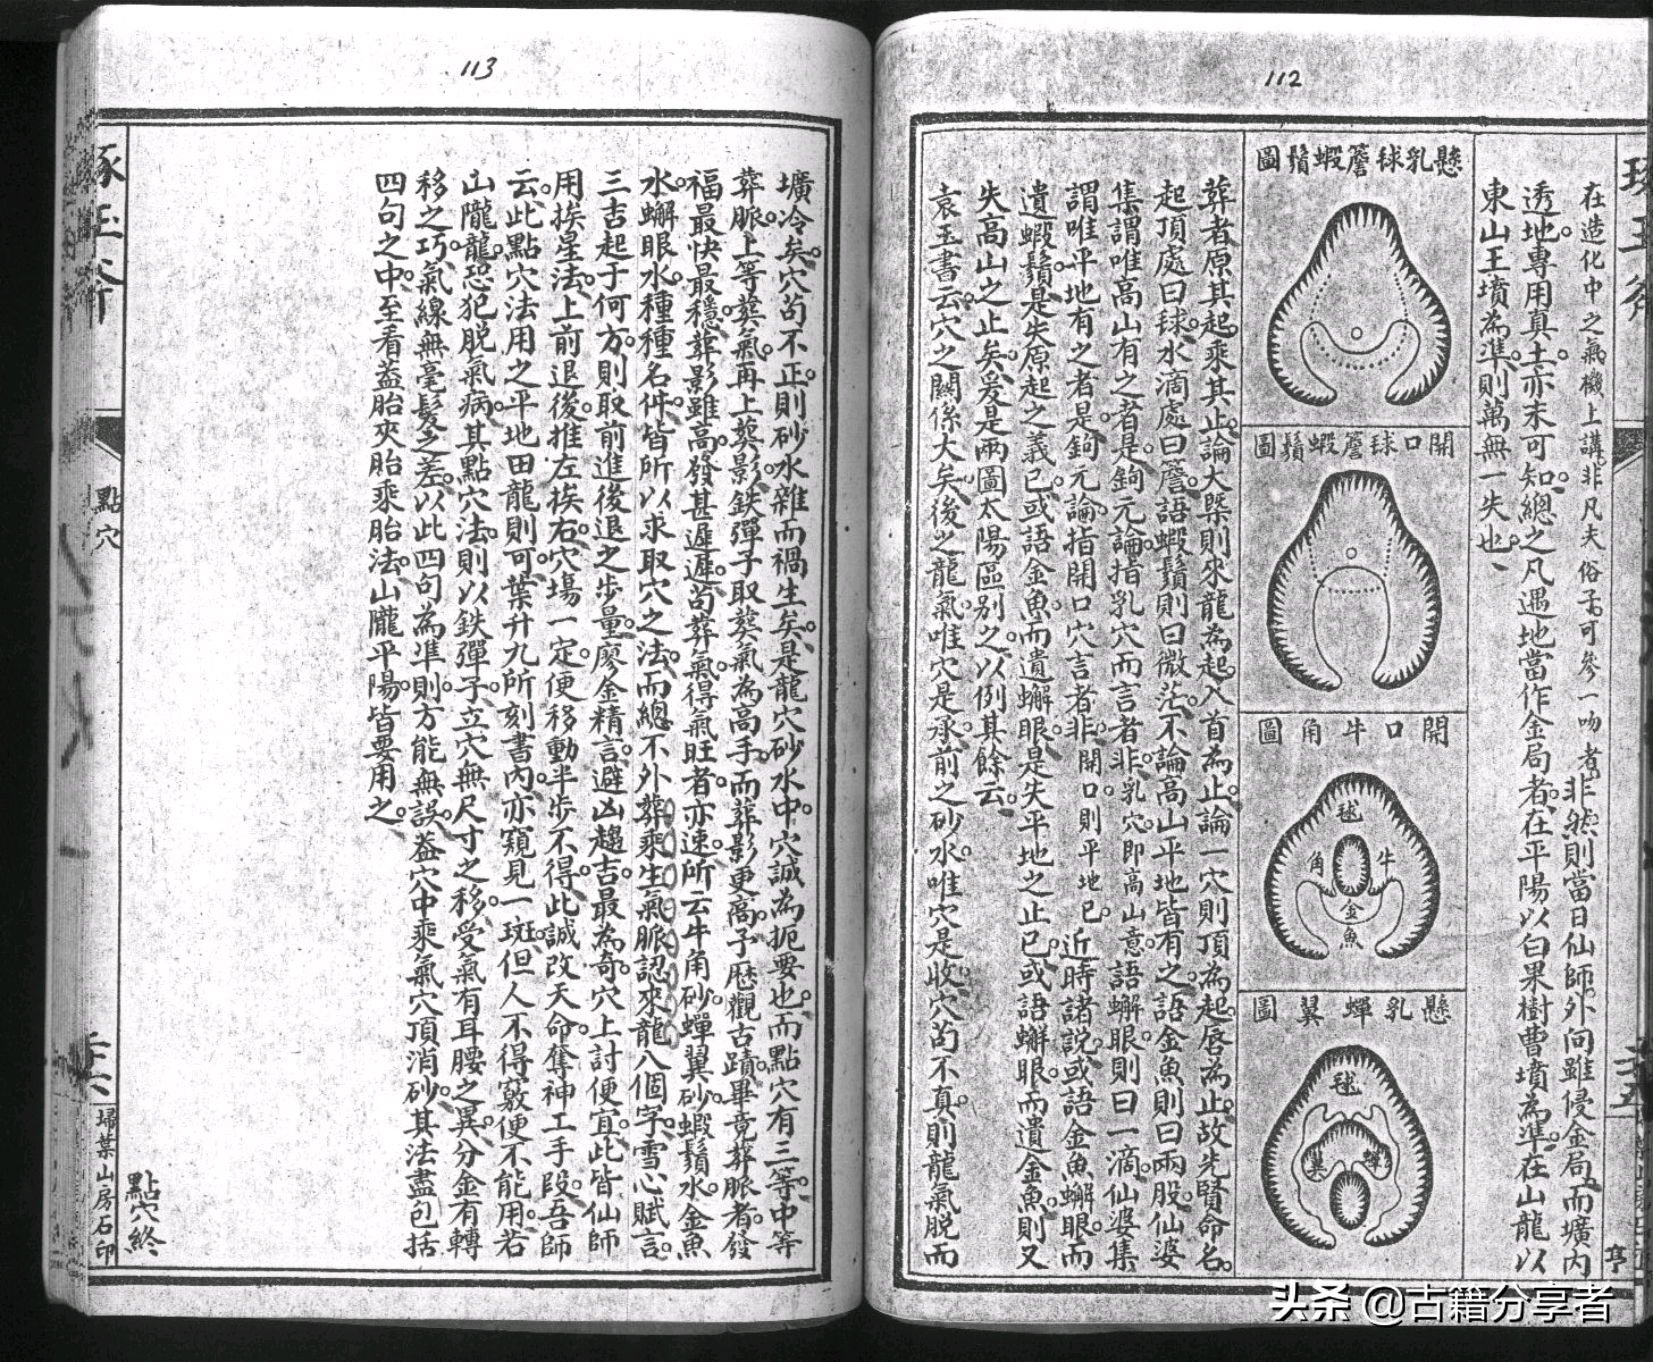 112
在造化中之氣機上講非凡夫俗子可參一吻者非然則當日仙師外向雖侵金局而壙內
透地專用真土亦未可知總之凡遇地當作金局者在平陽以白果樹曹墳為準在山龍以
東山王墳為準則萬無一失也
懸乳球簷蝦鬚圖
開口球簷蝦鬚圖
開口牛角圖
毬
牛
角
金魚
懸乳蟬翼圖
毬
蟬
翼
葬者原其起乘其止論大槩則來龍為起入首為止論一穴則頂為起唇為止故先賢命名
起頂處曰球水滴處曰簷語蝦鬚則曰微茫不論高山平地皆有之語金魚則曰兩股仙婆
集謂唯高山有之者是鉤元論指乳穴而言者非乳穴即高山意語蠏眼則曰一滴仙婆集
謂唯平地有之者是鉤元論指開口穴言者非開口則平地已近時諸說或語金魚蠏眼而
遺蝦鬚是失原起之義已或語金魚而遺蠏眼是失平地之止已或語蠏眼而遺金魚則又
失高山之止矣爰是兩圖太陽區別之以例其餘云
袁玉書云穴之關係大矣後之龍氣唯穴是承前之砂水唯穴是收穴苟不真則龍氣脫而
亨
113
壙冷矣穴苟不正則砂水雜而禍生矣是龍穴砂水中穴誠為扼要也而點穴有三等中等
葬脈上等葬氣再上葬影鉄彈子取葬氣為高手而葬影更高子歷觀古蹟畢竟葬脈者發
福最快最穩葬影雖高發甚遲遲苟葬氣得氣旺者亦速所云牛角砂蟬翼砂蝦鬚水金魚
水蠏眼水種種名件皆所以求取穴之法而總不外葬乘生氣脈認來龍八個字雪心賦言
三吉起于何方則取前進後退之步量廖金精言避凶趨吉最為奇穴上討便宜此皆仙師
用挨星法上前退後推左挨右穴塲一定便移動半步不得此誠改天命奪神工手段吾師
云此點穴法用之平地田龍則可葉升九所刻書內亦窺見一斑但人不得竅便不能用若
山隴龍恐犯脫氣病其點穴法則以鉄彈子立穴無尺寸之移受氣有耳腰之異分金有轉
移之巧氣線無毫髮之差以此四句為準則方能無誤葢穴中乘氣穴頂消砂其法盡包括
四句之中至看葢胎夾胎乘胎法山隴平陽皆要用之
點穴終
點穴
二十六
埽葉山房石印
头条 @古籍分享者